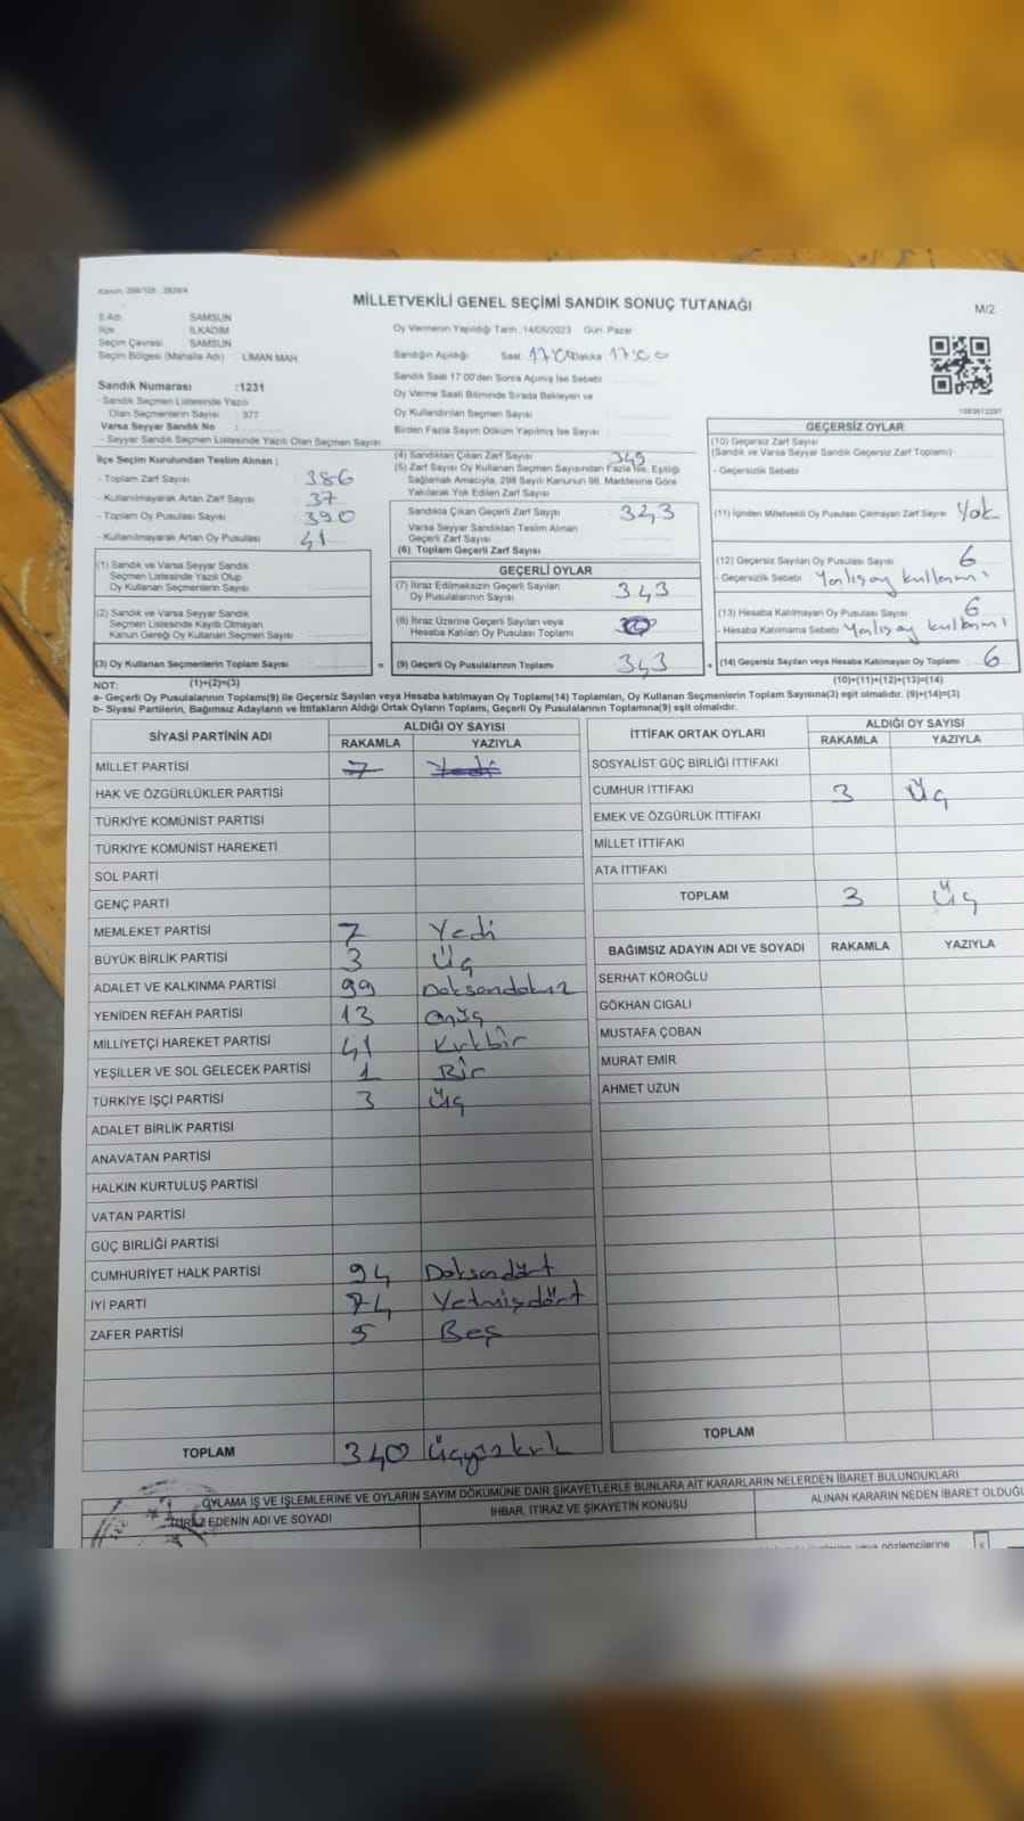 MİLLETVEKİLİ GENEL SEÇİMİ SANDIK SONUÇ TUTANAĞI
M/2
İl Adı SAMSUN
İlçe İLKADIM
Seçim Çevresi SAMSUN
Seçim Bölgesi (Mahalle Adı) LİMAN MAH.
Sandık Numarası :1231
- Sandık Seçmen Listesinde Yazılı
Olan Seçmenlerin Sayısı : 377
Varsa Seyyar Sandık No :
- Seyyar Sandık Seçmen Listesinde Yazılı Olan Seçmen Sayısı
Oy Vermenin Yapıldığı Tarih :14/05/2023 Gün: Pazar
Sandığın Açıldığı Saat 17:00 Dakika 17:00
Sandık Saat 17:00'den Sonra Açılmış İse Sebebi
Oy Verme Saati Bitiminde Sırada Bekleyen ve
Oy Kullandırılan Seçmen Sayısı
Birden Fazla Sayım Döküm Yapılmış İse Sayısı
İlçe Seçim Kurulundan Teslim Alınan :
- Toplam Zarf Sayısı 386
- Kullanılmayarak Artan Zarf Sayısı 37
- Toplam Oy Pusulası Sayısı 390
- Kullanılmayarak Artan Oy Pusulası 41
(1) Sandık ve Varsa Seyyar Sandık
Seçmen Listesinde Yazılı Olup
Oy Kullanan Seçmenlerin Sayısı
(2) Sandık ve Varsa Seyyar Sandık
Seçmen Listesinde Kayıtlı Olmayan
Kanun Gereği Oy Kullanan Seçmen Sayısı
(3) Oy Kullanan Seçmenlerin Toplam Sayısı
(4) Sandıktan Çıkan Zarf Sayısı 349
(5) Zarf Sayısı Oy Kullanan Seçmen Sayısından Fazla İse, Eşitliği
Sağlamak Amacıyla, 298 Sayılı Kanunun 98. Maddesine Göre
Yakılarak Yok Edilen Zarf Sayısı
Sandıkta Çıkan Geçerli Zarf Sayısı 343
Varsa Seyyar Sandıktan Teslim Alınan
Geçerli Zarf Sayısı
(6) Toplam Geçerli Zarf Sayısı
GEÇERLİ OYLAR
(7) İtiraz Edilmeksizin Geçerli Sayılan
Oy Pusulalarının Sayısı 343
(8) İtiraz Üzerine Geçerli Sayılan veya
Hesaba Katılan Oy Pusulası Toplamı
= (9) Geçerli Oy Pusulalarının Toplamı 343
GEÇERSİZ OYLAR
(10) Geçersiz Zarf Sayısı
(Sandık ve Varsa Seyyar Sandık Geçersiz Zarf Toplamı)
- Geçersizlik Sebebi
(11) İçinden Milletvekili Oy Pusulası Çıkmayan Zarf Sayısı Yok
(12) Geçersiz Sayılan Oy Pusulası Sayısı 6
- Geçersizlik Sebebi Yanlış oy kullanımı
(13) Hesaba Katılmayan Oy Pusulası Sayısı 6
- Hesaba Katılmama Sebebi Yanlış oy kullanımı
+ (14) Geçersiz Sayılan veya Hesaba Katılmayan Oy Toplamı 6
NOT: (1)+(2)=(3) (10)+(11)+(12)+(13)=(14)
a- Geçerli Oy Pusulalarının Toplamı(9) ile Geçersiz Sayılan veya Hesaba katılmayan Oy Toplamı(14) Toplamları, Oy Kullanan Seçmenlerin Toplam Sayısına(3) eşit olmalıdır. (9)+(14)=(3)
b- Siyasi Partilerin, Bağımsız Adayların ve İttifakların Aldığı Ortak Oyların Toplamı, Geçerli Oy Pusulalarının Toplamına(9) eşit olmalıdır.
SİYASİ PARTİNİN ADI ALDIĞI OY SAYISI
RAKAMLA YAZIYLA
MİLLET PARTİSİ 7 Yedi
HAK VE ÖZGÜRLÜKLER PARTİSİ
TÜRKİYE KOMÜNİST PARTİSİ
TÜRKİYE KOMÜNİST HAREKETİ
SOL PARTİ
GENÇ PARTİ
MEMLEKET PARTİSİ 7 Yedi
BÜYÜK BİRLİK PARTİSİ 3 Üç
ADALET VE KALKINMA PARTİSİ 99 Doksandokuz
YENİDEN REFAH PARTİSİ 13 Onüç
MİLLİYETÇİ HAREKET PARTİSİ 41 Kırkbir
YEŞİLLER VE SOL GELECEK PARTİSİ 1 Bir
TÜRKİYE İŞÇİ PARTİSİ 3 Üç
ADALET BİRLİK PARTİSİ
ANAVATAN PARTİSİ
HALKIN KURTULUŞ PARTİSİ
VATAN PARTİSİ
GÜÇ BİRLİĞİ PARTİSİ
CUMHURİYET HALK PARTİSİ 94 Doksandört
İYİ PARTİ 74 Yetmişdört
ZAFER PARTİSİ 5 Beş
TOPLAM 340 Üçyüzkırk
İTTİFAK ORTAK OYLARI ALDIĞI OY SAYISI
RAKAMLA YAZIYLA
SOSYALİST GÜÇ BİRLİĞİ İTTİFAKI
CUMHUR İTTİFAKI 3 Üç
EMEK VE ÖZGÜRLÜK İTTİFAKI
MİLLET İTTİFAKI
ATA İTTİFAKI
TOPLAM 3 Üç
BAĞIMSIZ ADAYIN ADI VE SOYADI RAKAMLA YAZIYLA
SERHAT KÖROĞLU
GÖKHAN CIGALI
MUSTAFA ÇOBAN
MURAT EMİR
AHMET UZUN
TOPLAM
OYLAMA İŞ VE İŞLEMLERİNE VE OYLARIN SAYIM DÖKÜMÜNE DAİR ŞİKAYETLERLE BUNLARA AİT KARARLARIN NELERDEN İBARET BULUNDUKLARI
EDENİN ADI VE SOYADI İHBAR, İTİRAZ VE ŞİKAYETİN KONUSU ALINAN KARARIN NEDEN İBARET OLDUĞU
veya gözlemcilerine